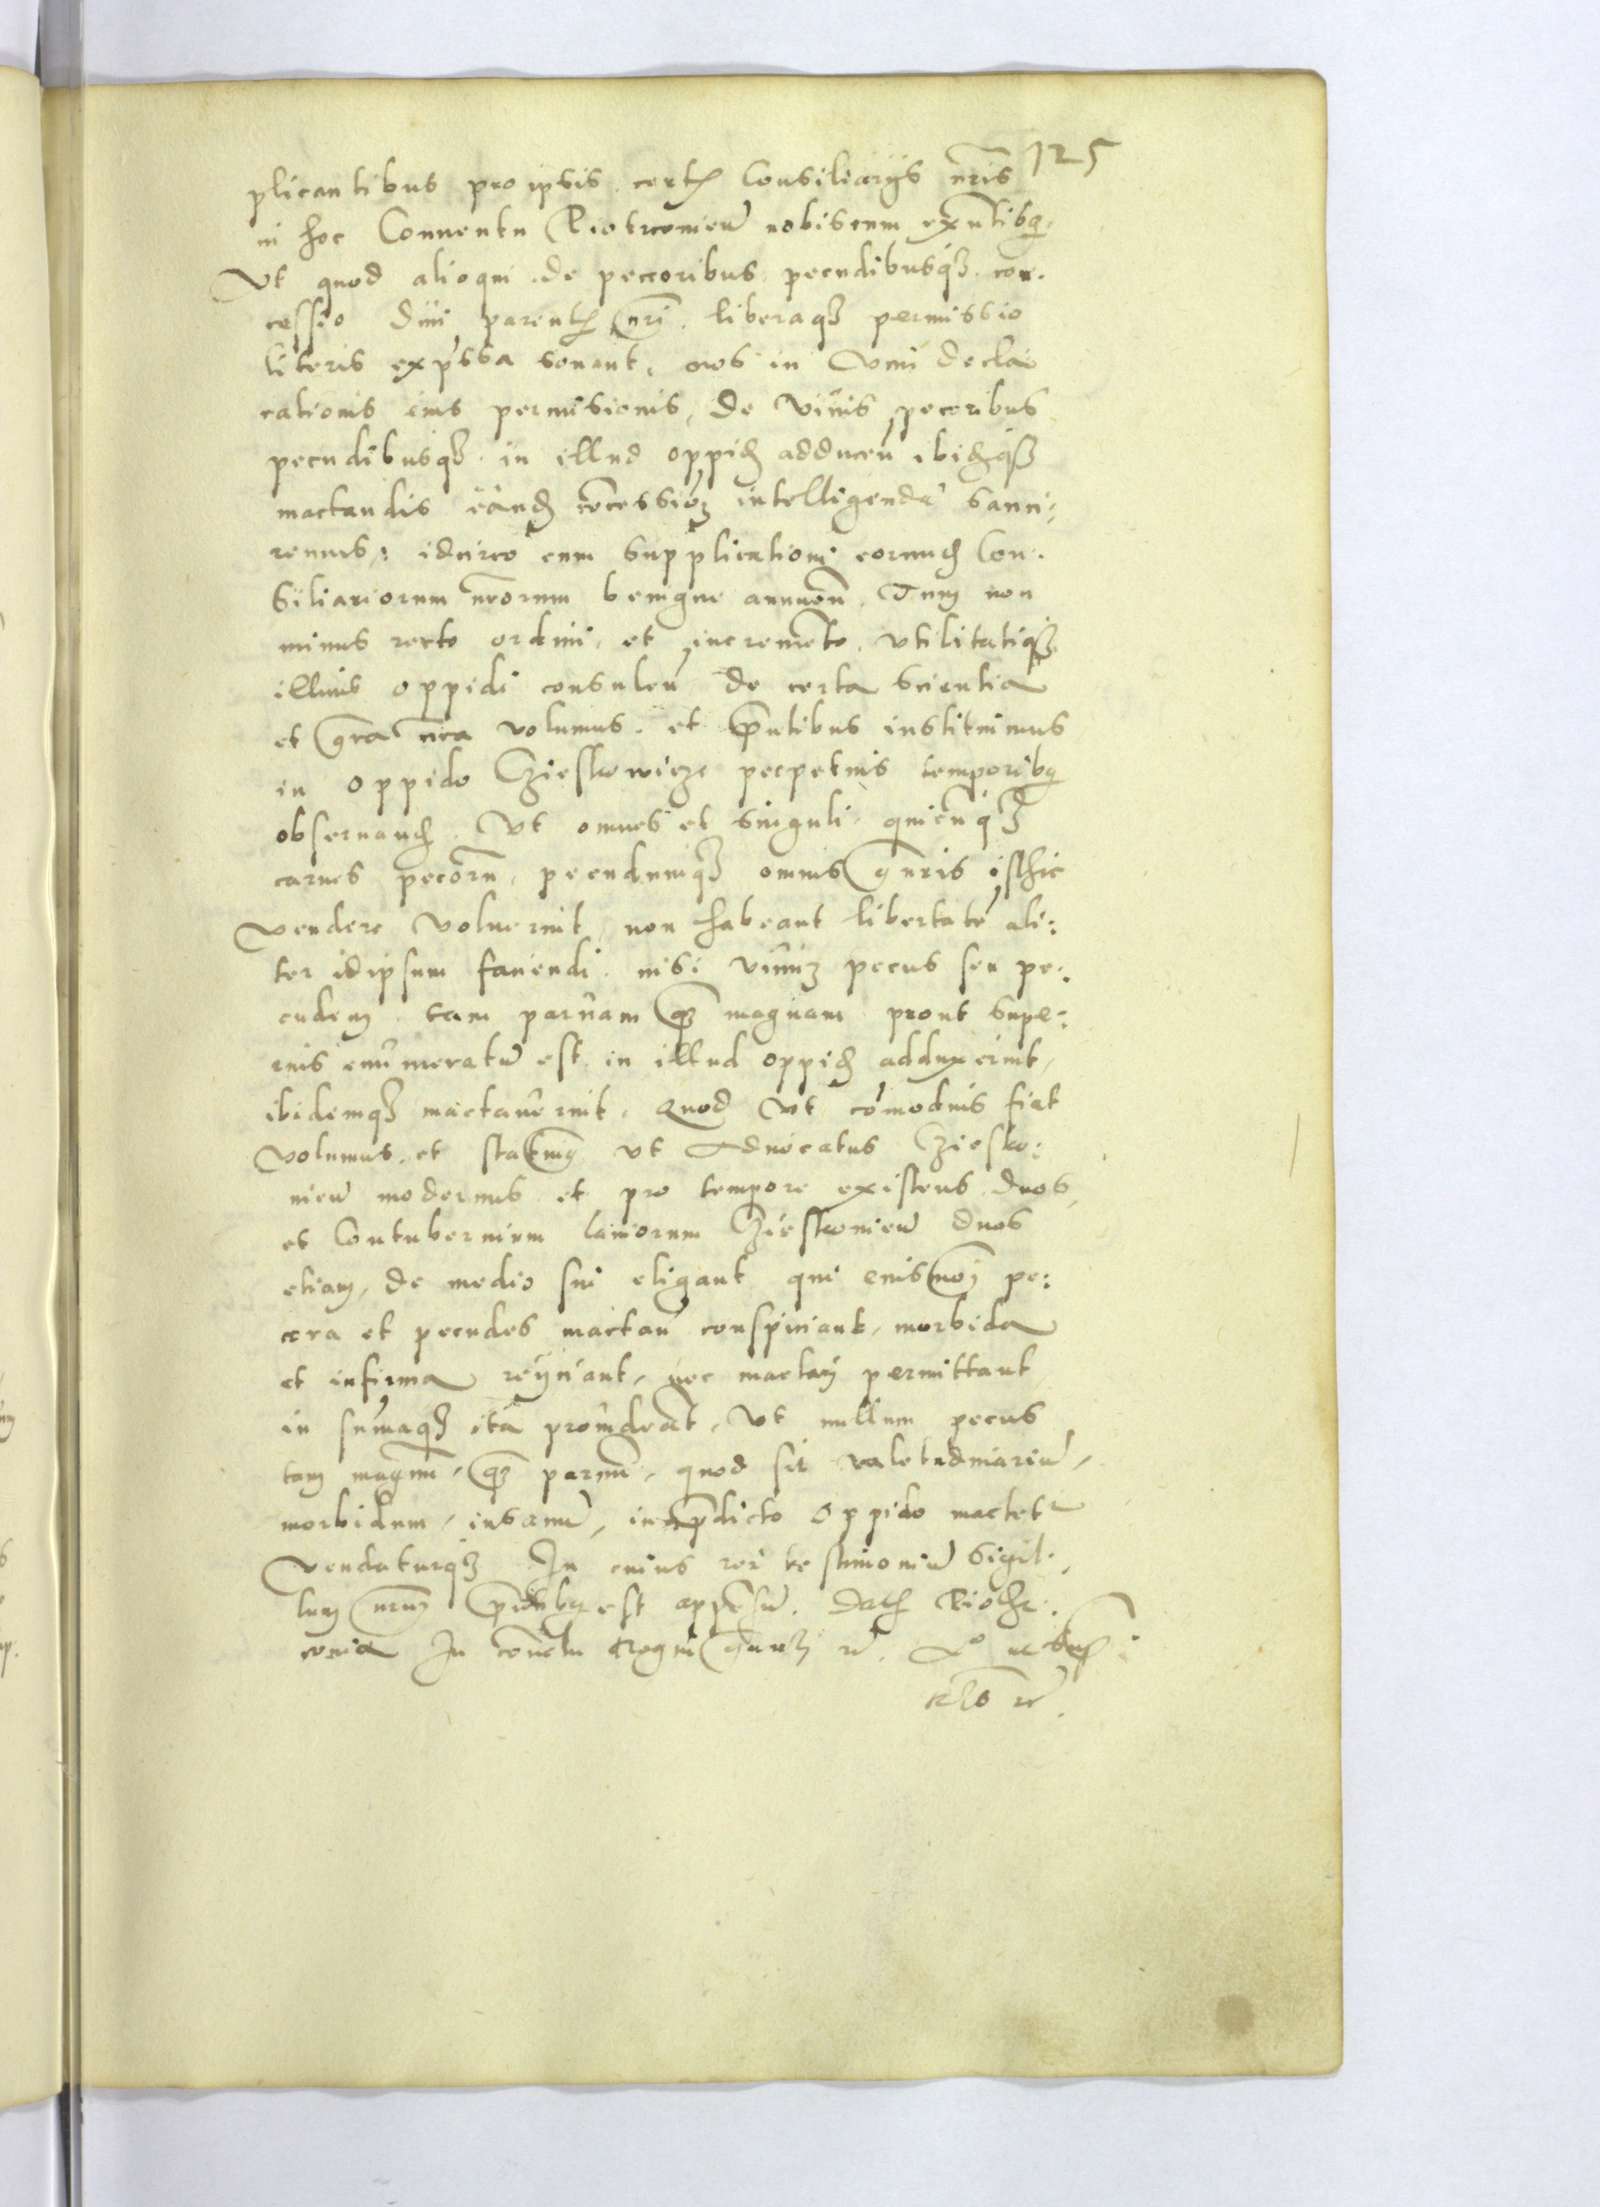 125
plicantibus pro ipsis certis Consiliarijs nris
in hoc Conventu Piotrcovieñ nobiscum exñtibq
Vt quod alioqui de peccoribus pecudibusqз con-
cessio Divi parentis nri liberaqз permissio
literis expressa sonant, nos in vim decla
rationis eius permissionis, de vivis pecoribus
pecudibusqз in illud oppid adduceñ ibidqз
mactandis eand concessioз intelligendã sanci:
remus: idcirco cum supplicationi eorund Con-
siliariorum nrorum benigne annueñ. Tum non
minus recto ordini et incremēto vtilitatiqз
illius oppidi consuleñ de certa scientia
et gra nra volumus et pñtibus instituimus
in oppido Czieskowicze perpetuis temporibq
observand. Vt omnes et singuli quicunqз
carnes pecorũ, pecudumqз omnis gnris isthic
vendere voluerint non habeant libertatẽ ali:
ter idipsum faciendi nisi vivuз pecus seu pe:
cudem tam parvam qз magnam prout supe:
rius enumeratũ est in illud oppid adduxerint,
ibidemqз mactaverint. Quod vt cõmodius fiat
volumus et statuimq vt Advocatus Cziesko:
vieñ modernus et pro tempore existens duos
et Contubernium laniorum Czieskovieñ duos
etiam de medio sui eligant qui eius<wbr>moi pe:
cora et pecudes mactañ conspiciant, morbida
et infirma reijciant, nec mactari permittant
in summaqз ita provideant, Vt nullum pecus
tam magnũ, qз parvũ, quod sit valetudinariũ,
morbidum, insanũ, in pdicto Oppido mactetr
vendaturqз In cuius rei testimoniũ Sigil-
lum nrum pñtibq est appensũ. Datis Piothr-
covia In cõventu Regni gnali